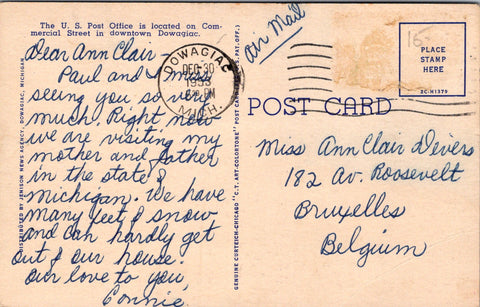 The U. S. Post Office is located on Com-
mercial Street in downtown Dowagiac.
Dear Ann Clair
Paul and I miss
seeing you so very
much. Right now
we are visiting my
mother and father
in the state of
Michigan. We have
many feet of snow
and can hardly get
out of our house.
our love to you,
Connie
DISTRIBUTED BY JENISON NEWS AGENCY, DOWAGIAC, MICHIGAN
GENUINE CURTEICH-CHICAGO "C.T. ART-COLORTONE" POST CARD (REG. U.S. PAT. OFF.)
Air Mail
DOWAGIAC
DEC 30
PM
MICH.
16-
PLACE
STAMP
HERE
2C-H1379
POST CARD
Miss Ann Clair Devers
182 Av. Roosevelt
Bruxelles
Belgium